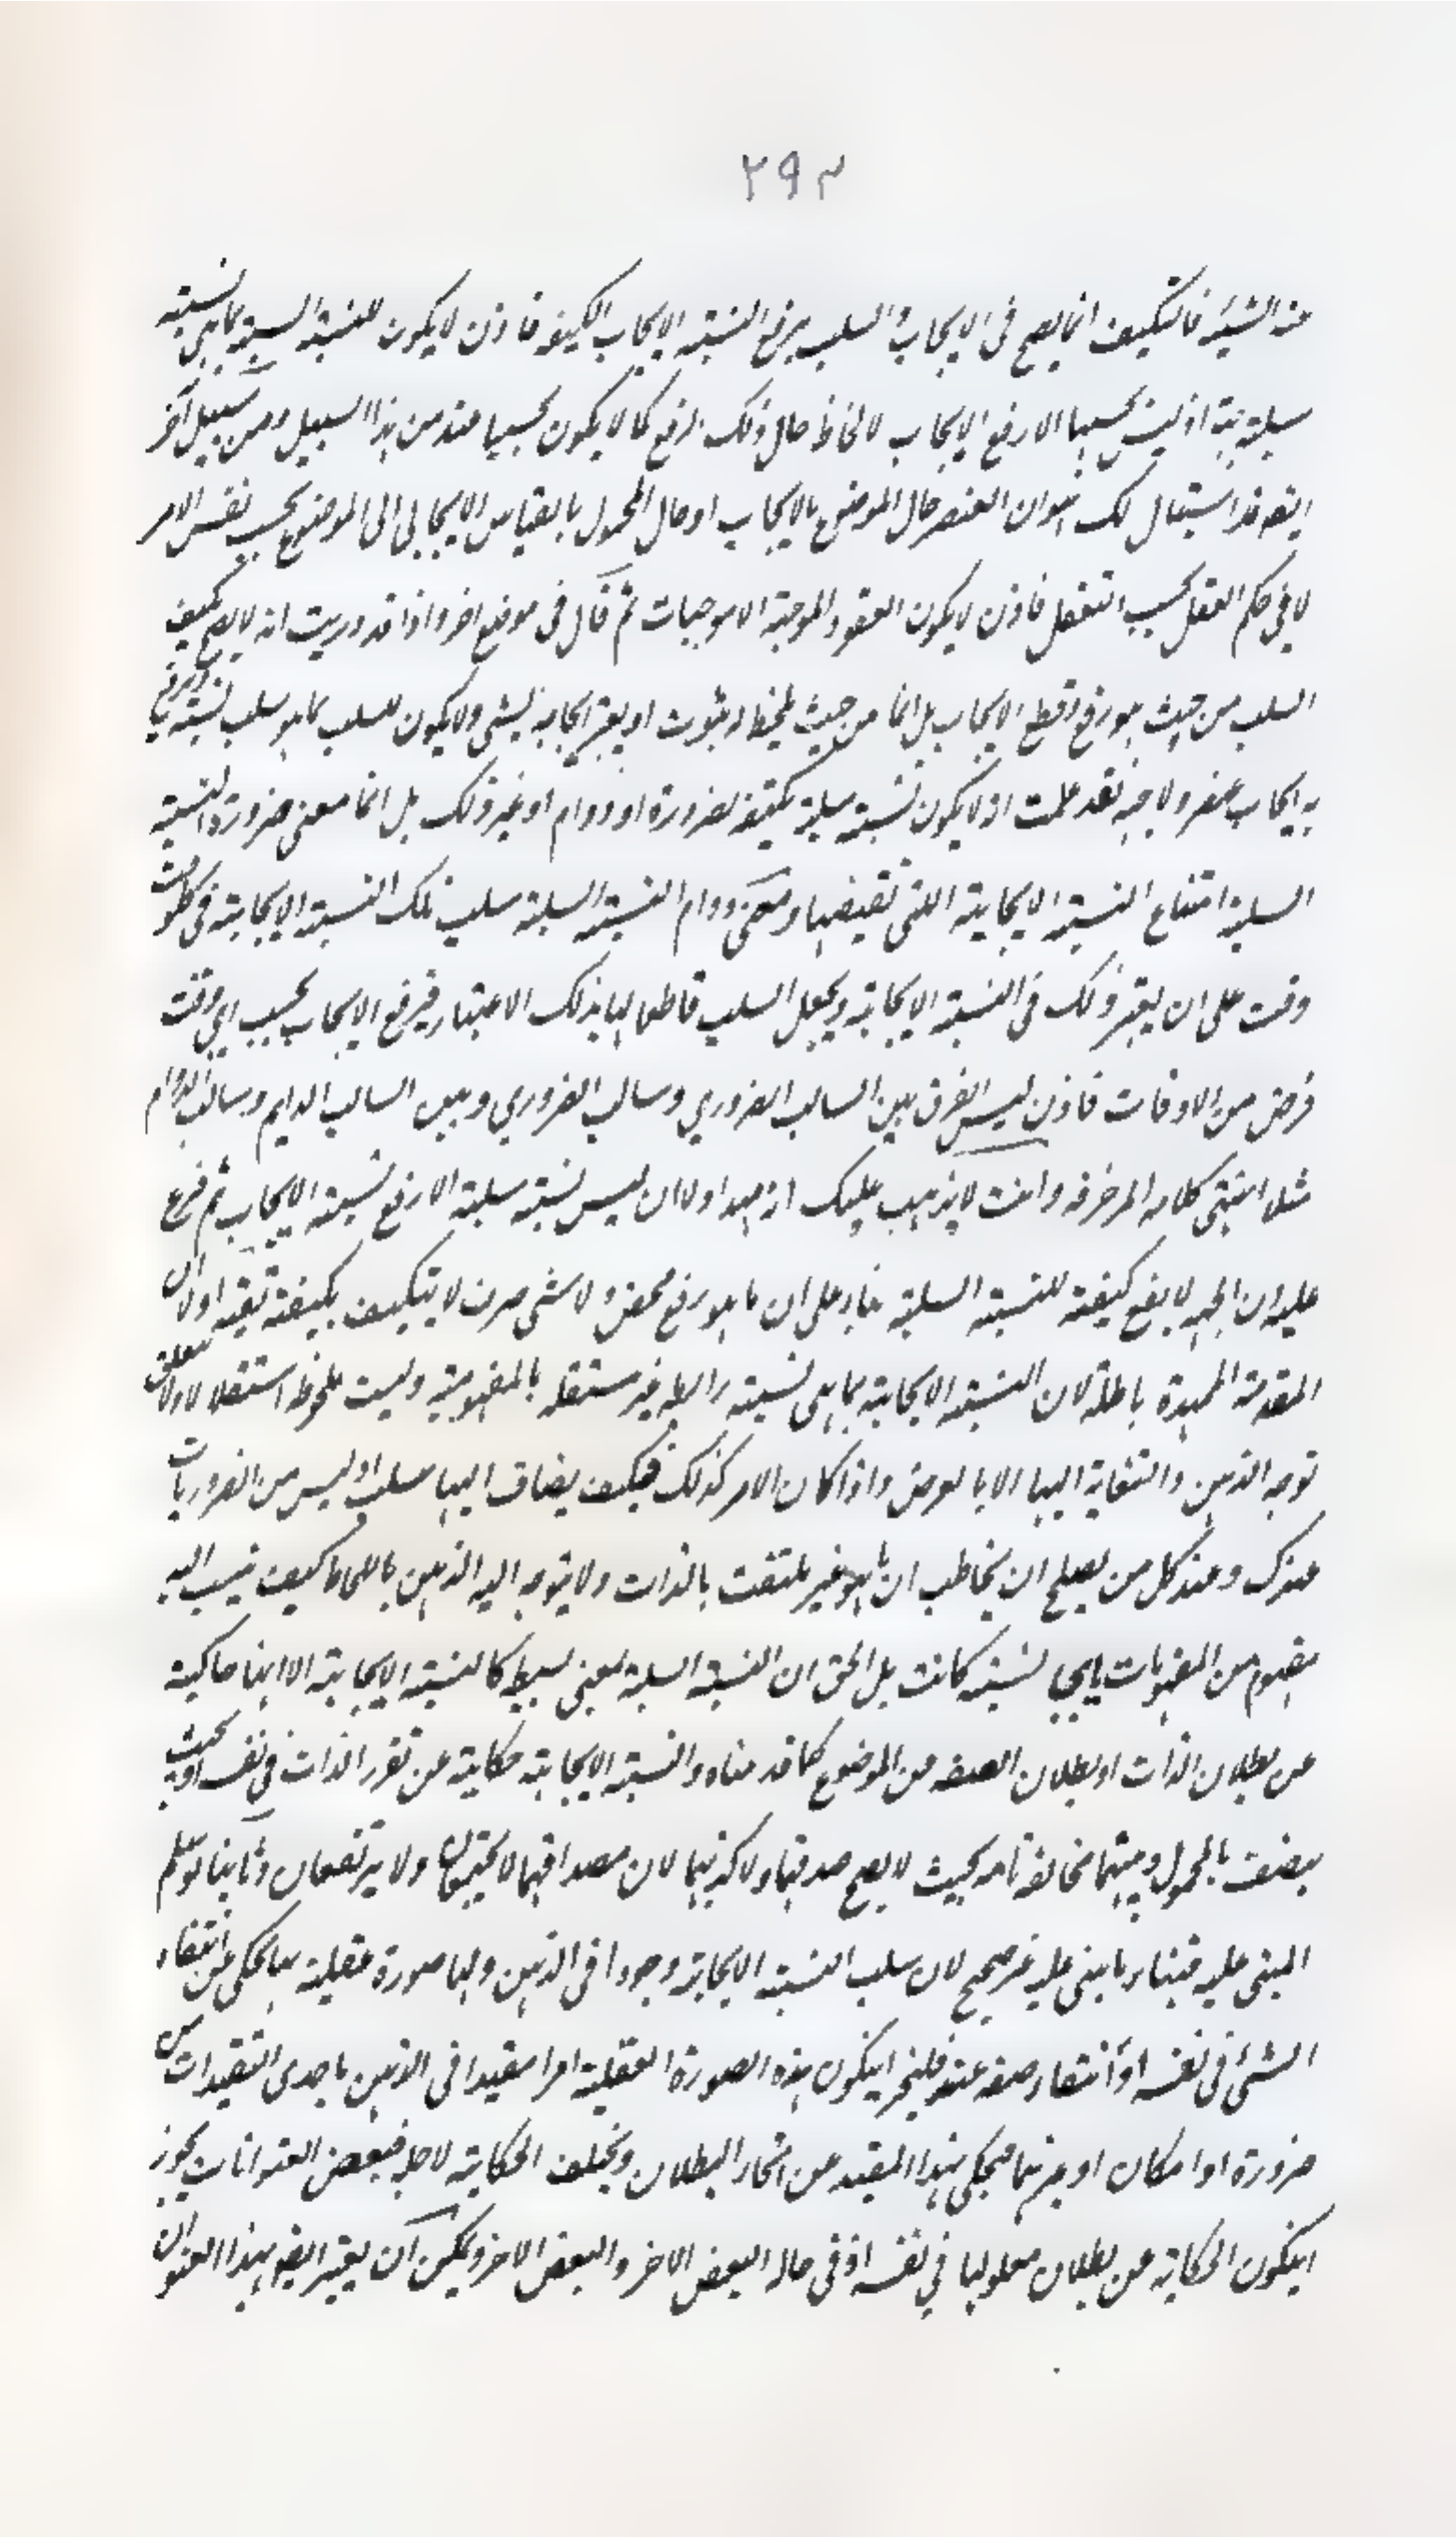 ٢٩٣
عند الشئ فالتكيف انما يصح فى الايجاب والسلب يرفع النسبة الايجاب الكيفه فاذن لا يكون للنسبة السلبية بما هى نسبة
سلبية جهة اذ ليس بحسبها الا رفع الايجاب لا لحاظ حال ذلك الرفع كما لا يكون بحسبها عند من هذا السبيل ومن سبيل آخر
ايضه قد استبان لك هوان العنصر حال الموضوع بالايجاب او حال المحمول بالقياس الايجابى الى الموضوع بحسب نفس الامر
لا فى حكم العقل بحسب التعقل فاذن لا يكون العقود الموجهة الا موجبات ثم قال فى موضع اخر واذا قد دريت انه لا يصح تكييف
السلب من حيث هو رفع وقطع الايجاب بل انما من حيث يلحظ له ثبوت او يعتبر ايجابه لشئ ولا يكون للسلب بما هو سلب نسبة
به ايجاب عنصر ولا جهة فقد علمت اذ لا يكون نسبة سلبية مكيفة بضرورة او دوام او غير ذلك بل انما معنى ضرورة النسبة
السلبية امتناع النسبة الايجابية التى نقيضها ومعنى دوام النسبة السلبية سلب تلك النسبة الايجابية فى كل وقت
وقت على ان يعتبر ذلك فى النسبة الايجابية ويجعل السلب قاطعا لها بذلك الاعتبار فيرفع الايجاب بحسب اى وقت
فرض من الاوقات فاذن ليس الفرق بين السالب الضرورى وسالب الضرورى وبين السالب الدايم وسالب الدوام
مثلا انتهى كلامه المزخرفة وانت لا يذهب عليك انه مهد اولا ان ليس نسبة سلبية الا رفع نسبة الايجاب ثم فرع
عليه ان الجهة لا يقع كيفية للنسبة السلبية بناء على ان ما هو رفع محض ولا شئ صرف لا يتكيف بكيفية تقيد اولا ان
المقدمة الممهدة باطلة لان النسبة الايجابية بما هى نسبة رابطة غير مستقلة بالمفهومية وليست ملحوظة استقلالا ولا يتعلق
توجه الذهن والتفاته اليها الا بالعرض واذا كان الامر كذلك فكيف يضاف اليها سلب اوليس من الضروريات
عندك وعند كل من يصلح ان يخاطب ان ما هو غير ملتفت بالذات ولا يتوجه اليه الذهن باللحاظ كيف ينسب اليه
مفهوم من المفهومات بايجاب نسبة كانت بل الحق ان النسبة السلبية معنى بسيط كالنسبة الايجابية الا انها حاكية
عن بطلان الذات او بطلان الصفة من الموضوع كما قدمناه والنسبة الايجابية حكاية عن تقرر الذات فى نفسه او بحيث
يتصف بالمحمول وبينهما مخالفة تامة بحيث لا يصح صدقهما ولا كذبهما لان مصداقيهما لا يجتمعان ولا يرتفعان وثانيا لو سلم
المبنى عليه فبناء ما بنى عليه غير صحيح لان سلب النسبة الايجابية وجودا فى الذهن ولها صورة عقلية بها يحكى عن انتفاء
الشئ فى نفسه او انتفاء صفة عنه فليجز ايكون هذه الصورة العقلية امرا مقيدا فى الذهن باحدى التقيدات من
ضرورة او امكان او غيرهما فيحكى بهذا المقيد عن انحاء البطلان ويختلف الحكاية لاجله فبعض العنوانات يجوز
ايكون الحكاية عن بطلان معلولها فى نفسه او فى حاله البعض الاخر والبعض الاخر ويمكن ان يعتبر ايضه بهذا العنوان